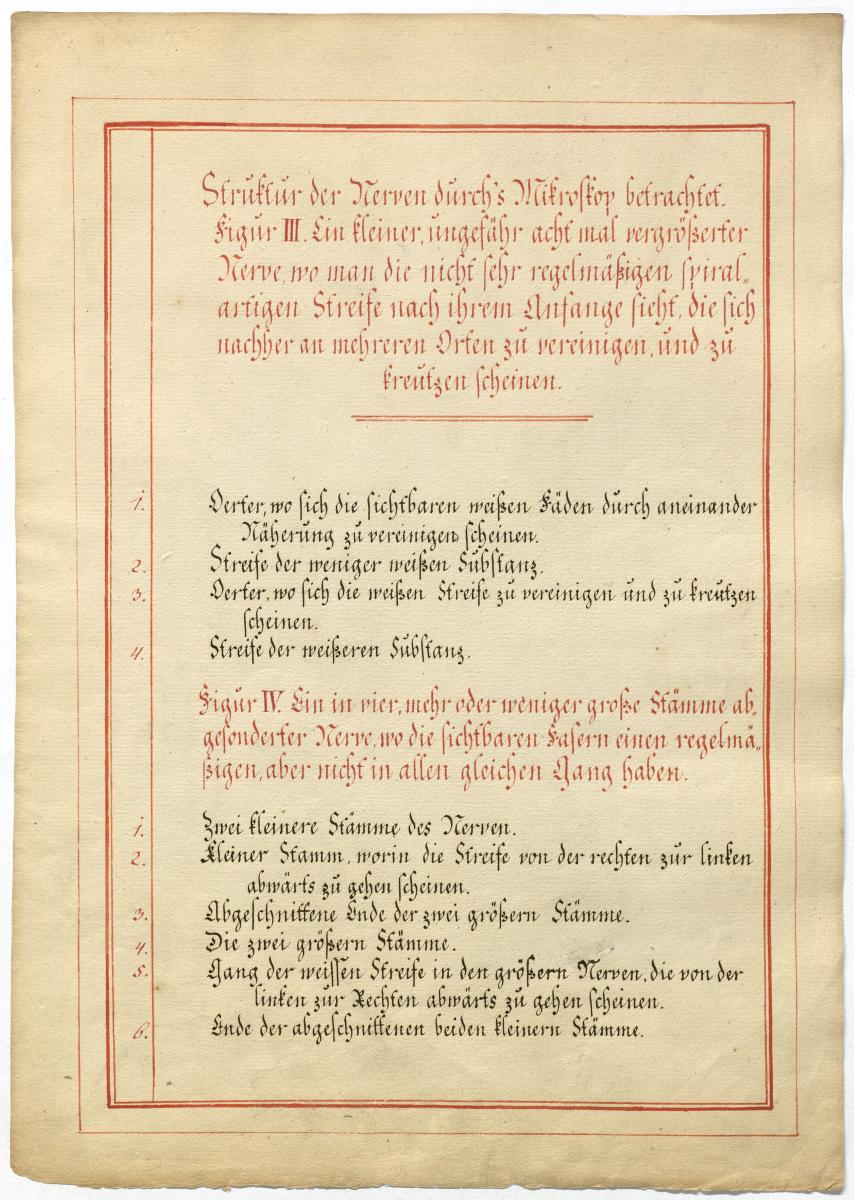 Struktur der Nerven durch's Mikroskop betrachtet.
Figur III. Ein kleiner, ungefähr acht mal vergrößerter
Nerve, wo man die nicht sehr regelmäßigen spiral„
artigen Streife nach ihrem Anfange sieht, die sich
nachher an mehreren Orten zu vereinigen, und zu
kreutzen scheinen.
1. Oerter, wo sich die sichtbaren weißen Fäden durch aneinander
Näherung zu vereinigen scheinen.
2. Streife der weniger weißen Substanz.
3. Oerter, wo sich die weißen Streife zu vereinigen und zu kreutzen
scheinen.
4. Streife der weißeren Substanz.
Figur IV. Ein in vier, mehr oder weniger große Stämme ab„
gesonderter Nerve, wo die sichtbaren Fasern einen regelmä„
ßigen, aber nicht in allen gleichen Gang haben.
1. Zwei kleinere Stämme des Nerven.
2. Kleiner Stamm, worin die Streife von der rechten zur linken
abwärts zu gehen scheinen.
3. Abgeschnittene Ende der zwei größern Stämme.
4. Die zwei größern Stämme.
5. Gang der weissen Streife in den größern Nerven, die von der
linken zur Rechten abwärts zu gehen scheinen.
6. Ende der abgeschnittenen beiden kleinern Stämme.